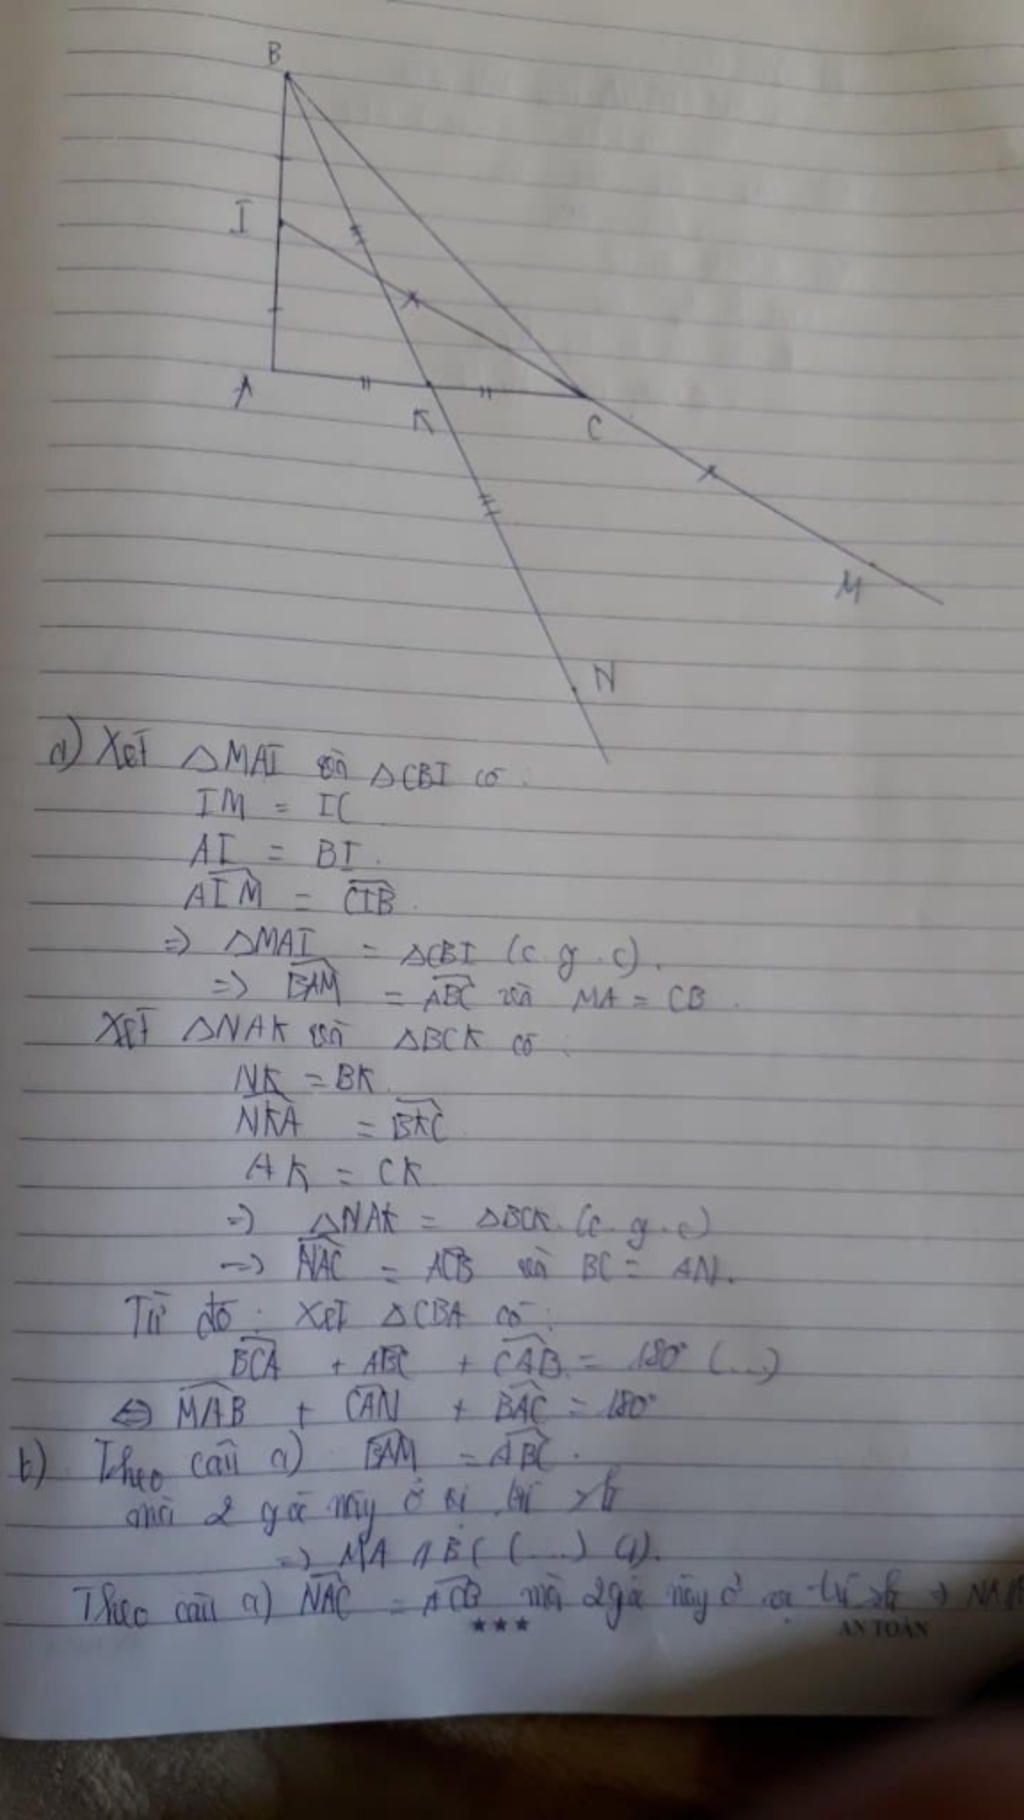 B
I
A
K
C
M
N
a) Xét △MAI và △CBI có :
IM = IC
AI = BI .
AIM = CIB .
=> △MAI = △CBI (c.g.c).
=> BAM = ABC và MA = CB .
Xét △NAK và △BCK có :
NK = BK .
NKA = BKC
AK = CK
=> △NAK = △BCK. (c.g.c)
=> NAC = ACB và BC = AN.
Từ đó : Xét △CBA có :
BCA + ABC + CAB = 180° (...)
<=> MAB + CAN + BAC = 180°
b) Theo câu a) BAM = ABC .
mà 2 góc này ở vị trí slt
=> MA // BC (...) (1).
Theo câu a) NAC = ACB mà 2 góc này ở vị trí slt => NA//
***
AN TOÀN